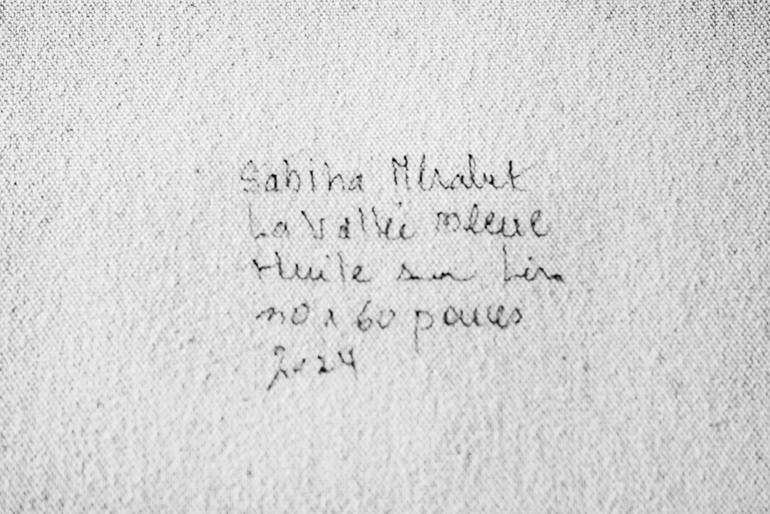 Sabiha Mérabet
La Vallée Bleue
Huile sur lin
x 60 pouces
2024